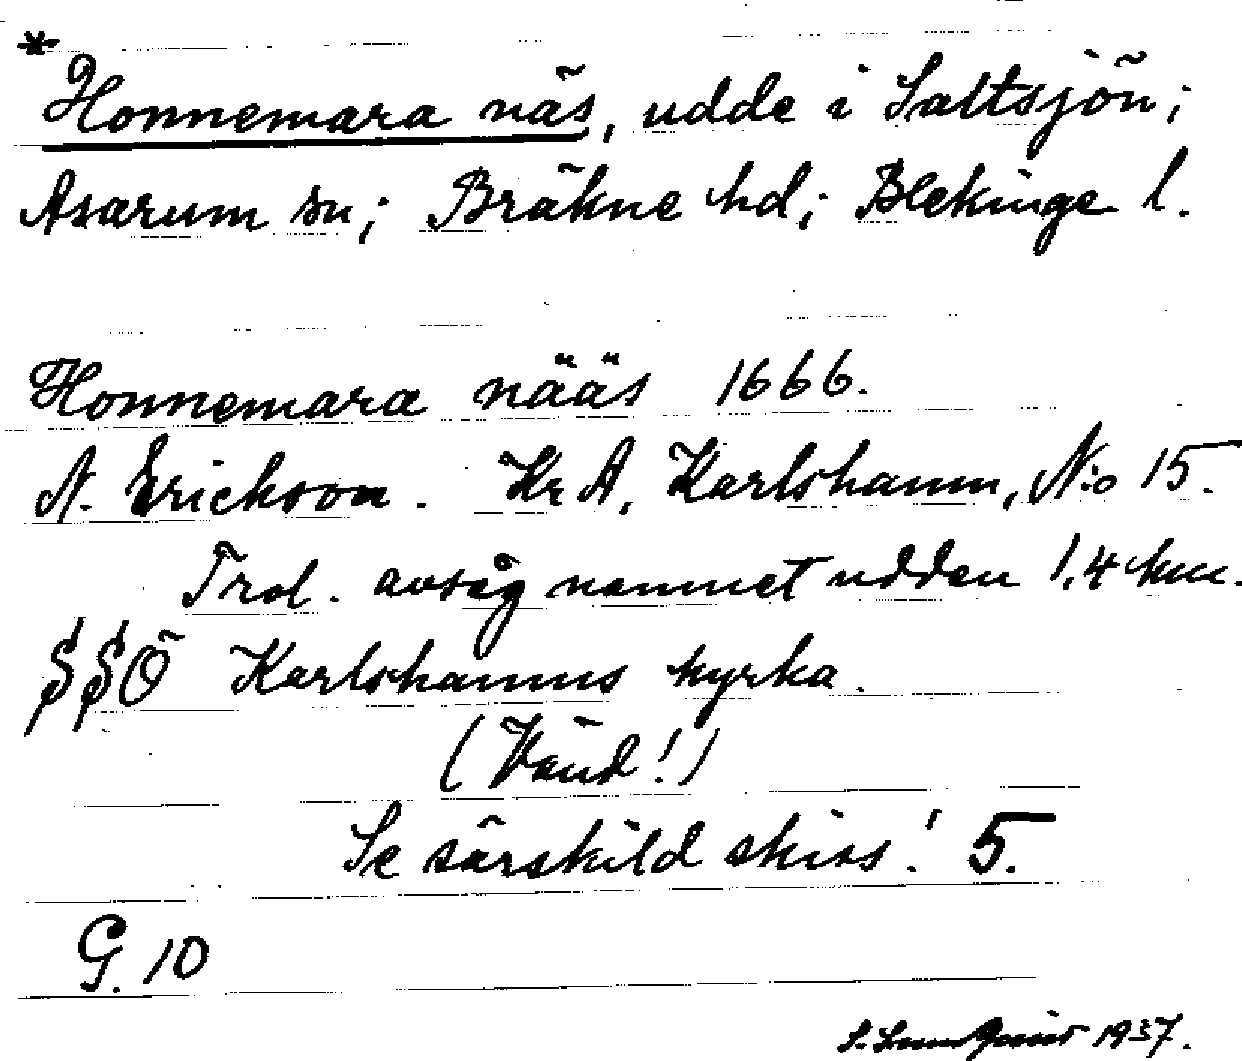 *
Honnemara näs, udde i Saltsjön;
Asarum sn; Bräkne hd; Blekinge l.
Honnemara nääs 1666.
N. Erickson. Kr A, Karlshamn, N:o 15.
Trol. avsåg namnet udden 1,4 km.
SSÖ Karlshamns kyrka.
(Vänd!)
Se särskild skiss! 5.
G. 10
1937.